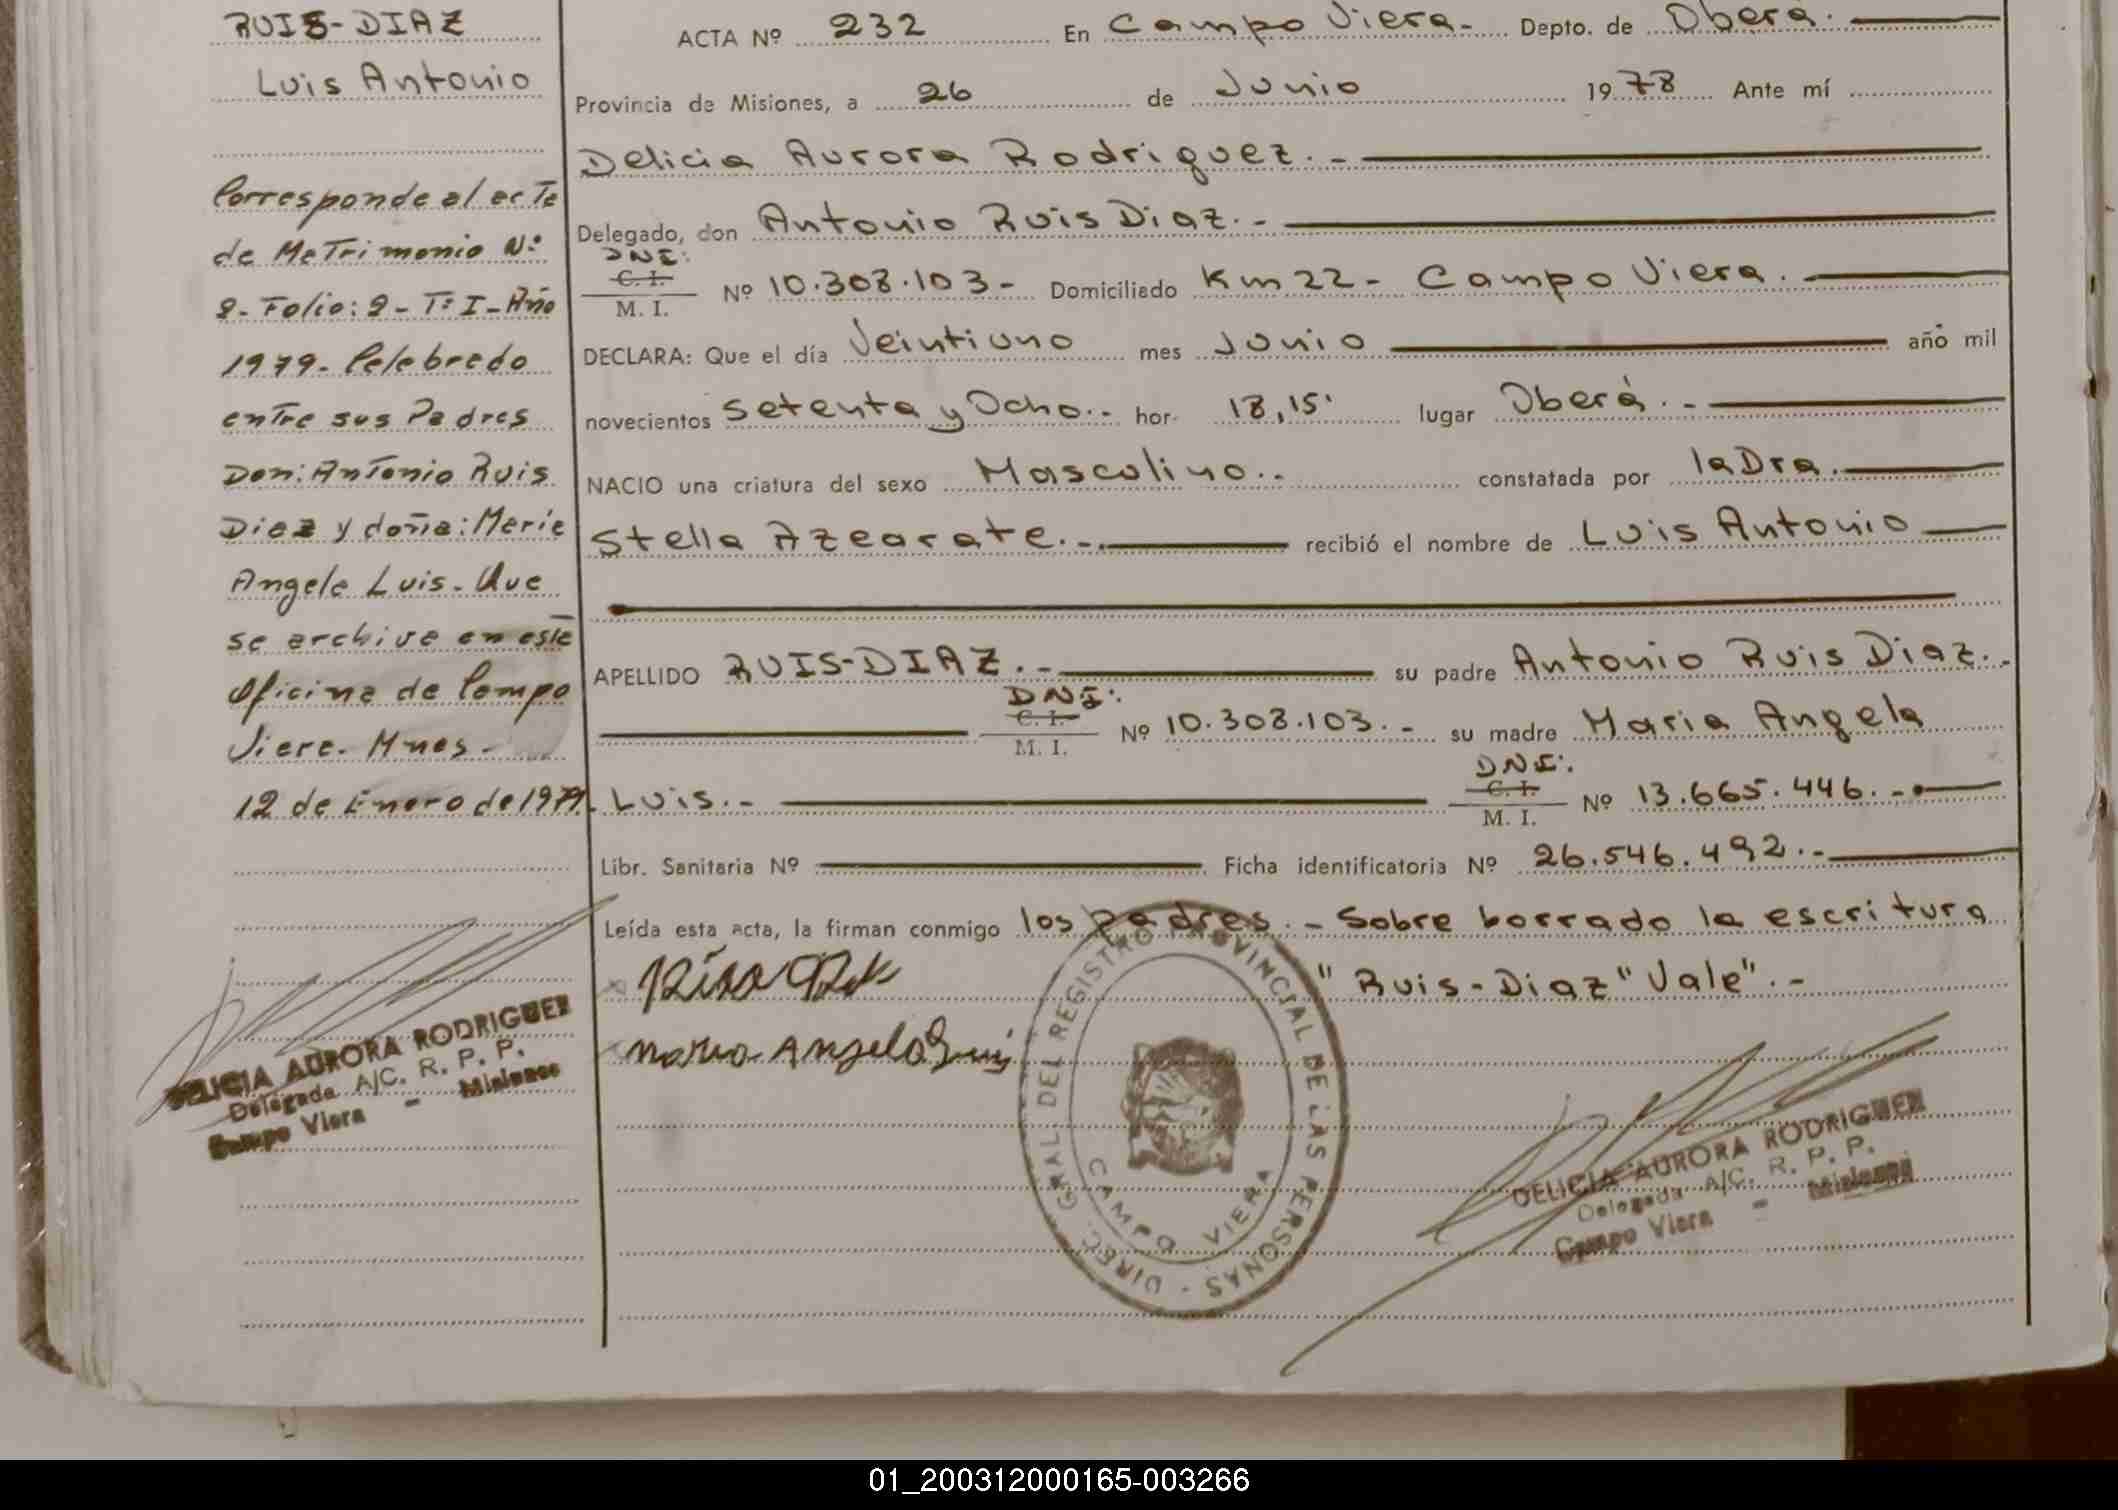 RUIS-DIAZ
Luis Antonio
Corresponde al acta
de Matrimonio Nº
2- Folio: 2 - Tº I - Año
1979- Celebrado
entre sus Padres
Don: Antonio Ruis
Diaz y doña: Maria
Angela Luis. Que
se archiva en esta
Oficina de Campo
Viera. Mnes.
12 de Enero de 1979.
DELICIA AURORA RODRIGUEZ
Delegada A/C. R. P. P.
Campo Viera - Misiones
ACTA Nº 232 En Campo Viera.- Depto. de Oberá.
Provincia de Misiones, a 26 de Junio 1978 Ante mí
Delicia Aurora Rodriguez.-
Delegado, don Antonio Ruis Diaz.-
DNI:
C. I.
M. I. Nº 10.308.103- Domiciliado Km 22- Campo Viera.
DECLARA: Que el día Veintiuno mes Junio año mil
novecientos setenta y Ocho.- hor. 18,15' lugar Oberá.-
NACIO una criatura del sexo Masculino.- constatada por la Dra.
Stella Azcarate.- recibió el nombre de Luis Antonio
APELLIDO RUIS-DIAZ.- su padre Antonio Ruis Diaz.-
DNI:
C. I.
M. I. Nº 10.308.103.- su madre Maria Angela
DNI:
Luis.- C. I.
M. I. Nº 13.665.446.-
Libr. Sanitaria Nº Ficha identificatoria Nº 26.546.492.-
Leída esta acta, la firman conmigo los padres.- Sobre borrado la escritura
"Ruis-Diaz" Vale".-
Maria Angela Luis
DIREC. GRAL. DEL REGISTRO PROVINCIAL DE LAS PERSONAS -
CAMPO VIERA
DELICIA AURORA RODRIGUEZ
Delegada A/C. R. P. P.
Campo Viera - Misiones
01_200312000165-003266